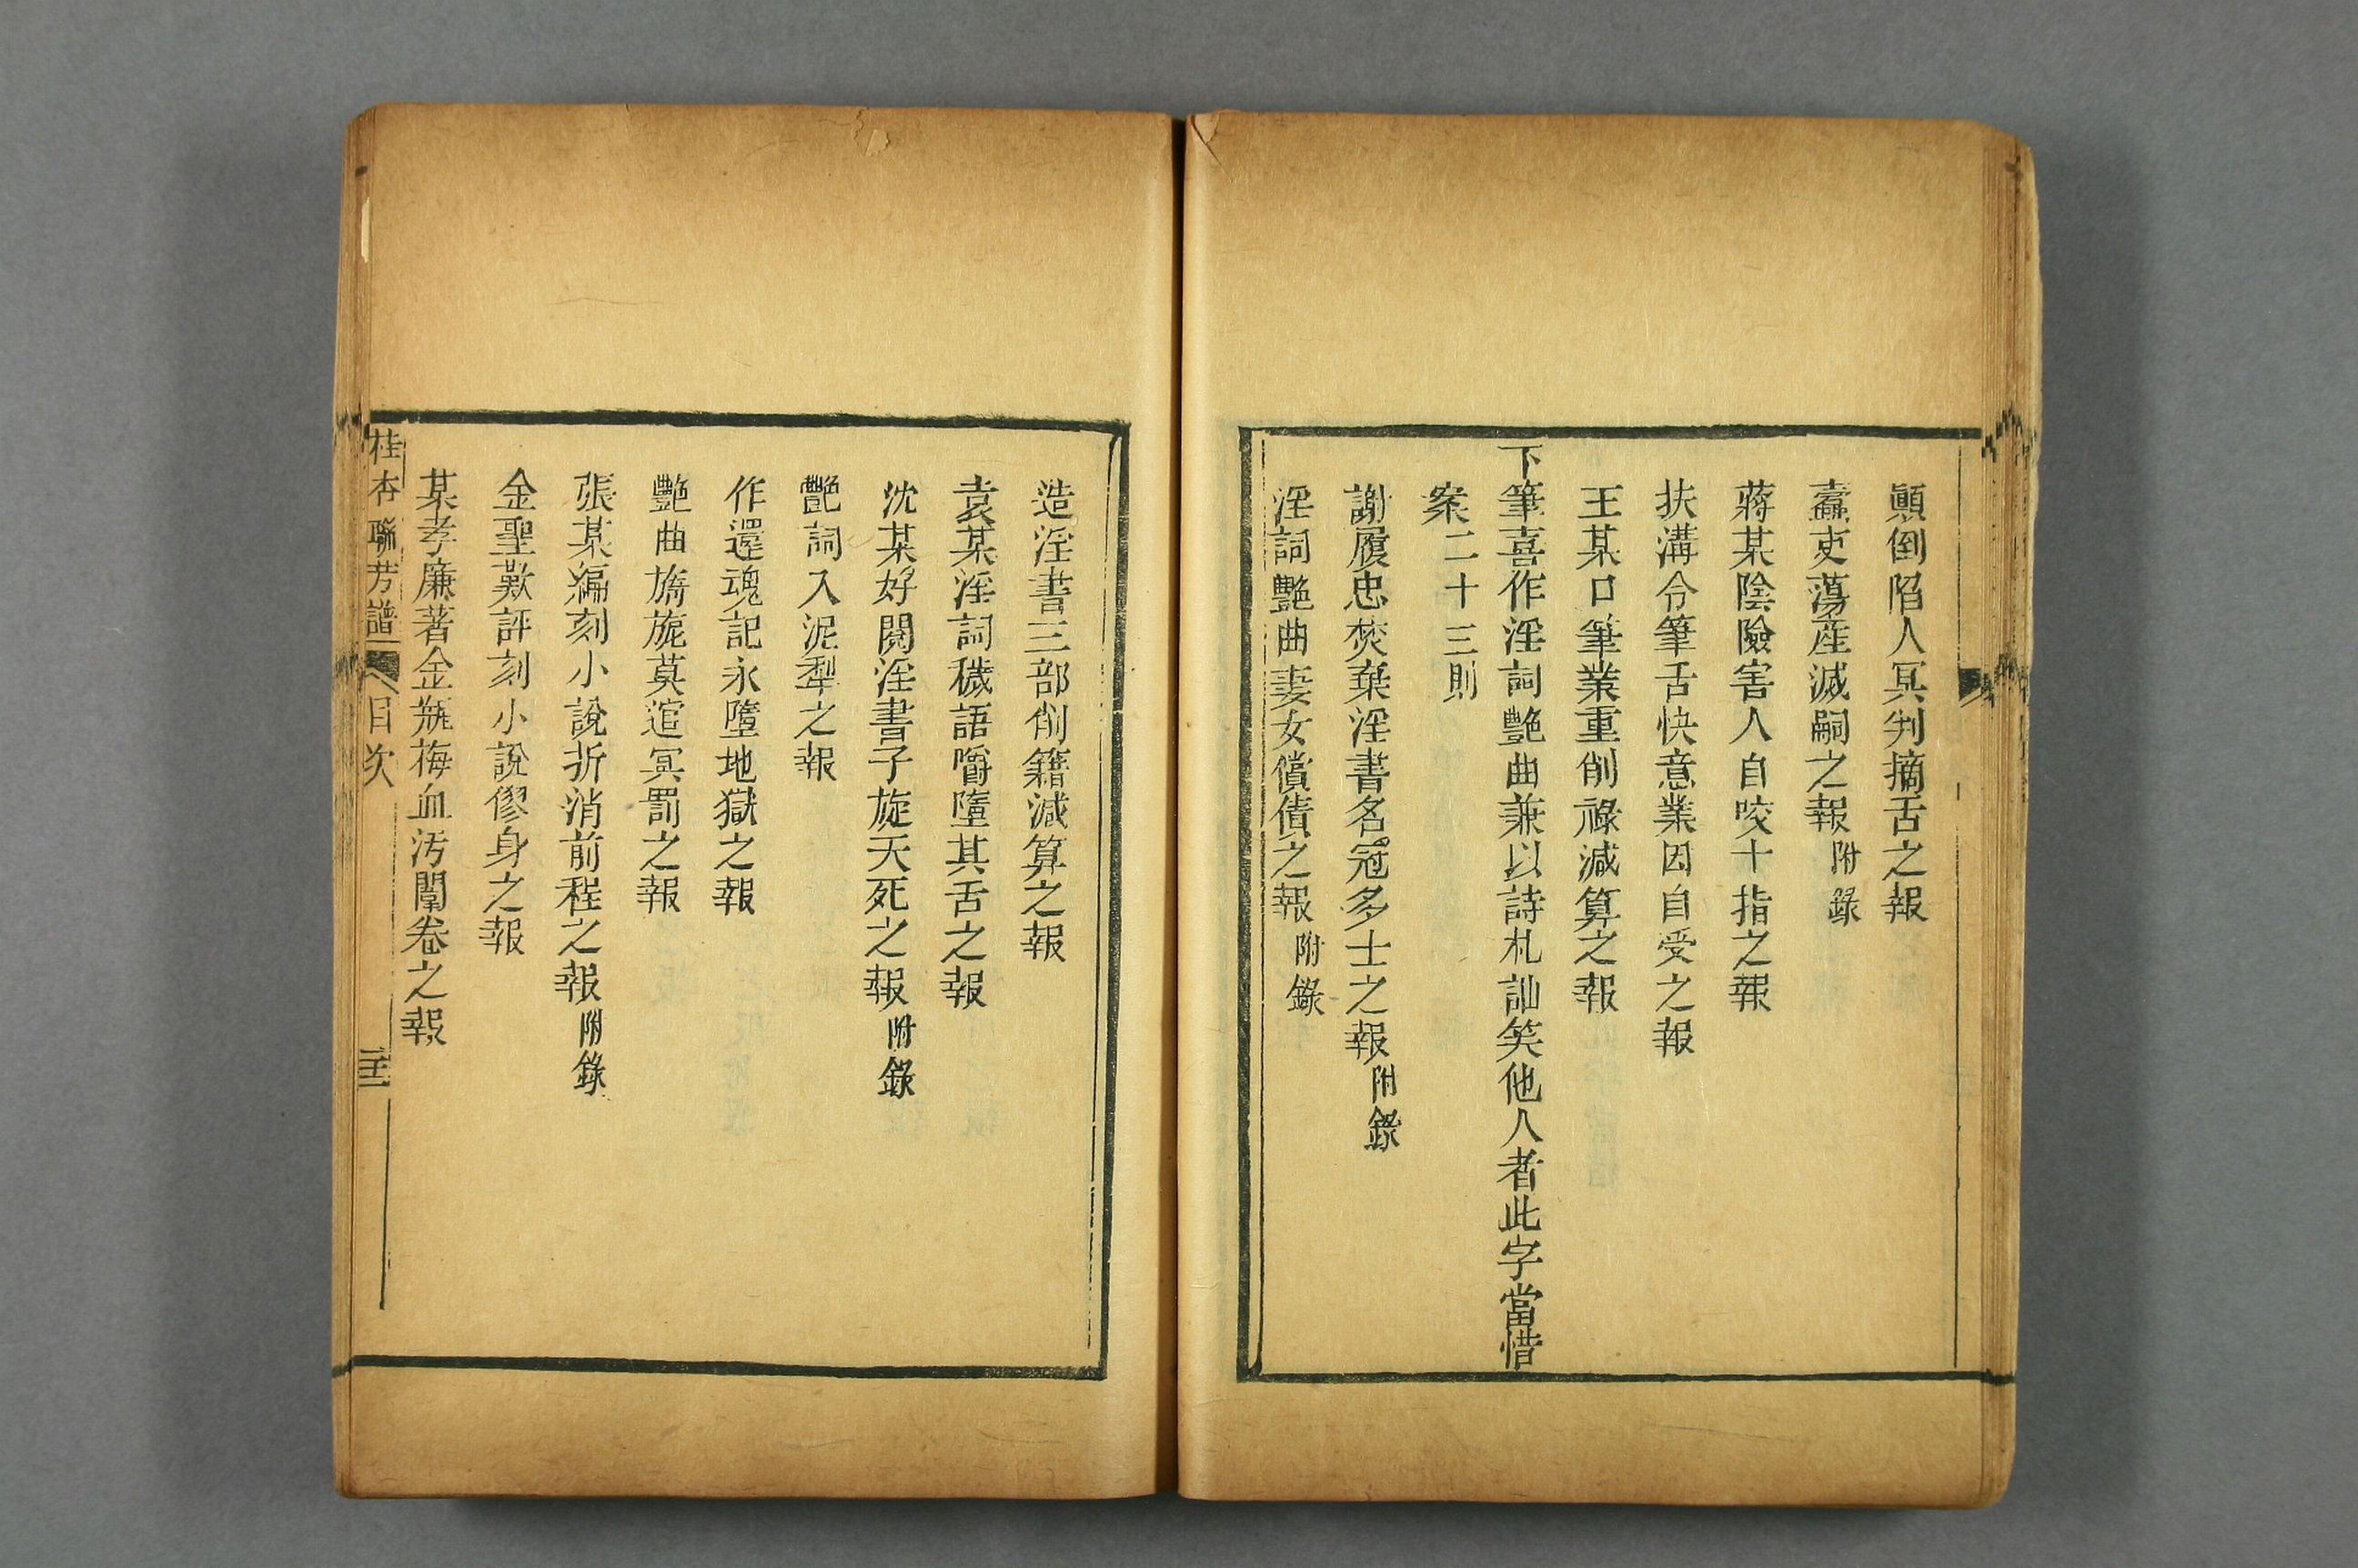 顚倒陷人冥判摘舌之報
蠹吏蕩産滅嗣之報 附錄
蔣某陰險害人自咬十指之報
扶溝令筆舌快意業因自受之報
王某口筆業重削祿減算之報
下筆喜作淫詞艷曲兼以詩札訕笑他人者此字當惜
案二十三則
謝履忠焚棄淫書名冠多士之報 附錄
淫詞艷曲妻女償債之報 附錄
造淫書三部削籍減算之報
袁某淫詞穢語嚼墮其舌之報
沈某好閱淫書子旋夭死之報 附錄
艷詞入泥犁之報
作還魂記永墮地獄之報
艷曲旖旎莫逭冥罰之報
張某編刻小說折消前程之報 附錄
金聖歎評刻小說僇身之報
某孝廉著金瓶梅血污闈卷之報
桂杏聯芳譜 目次